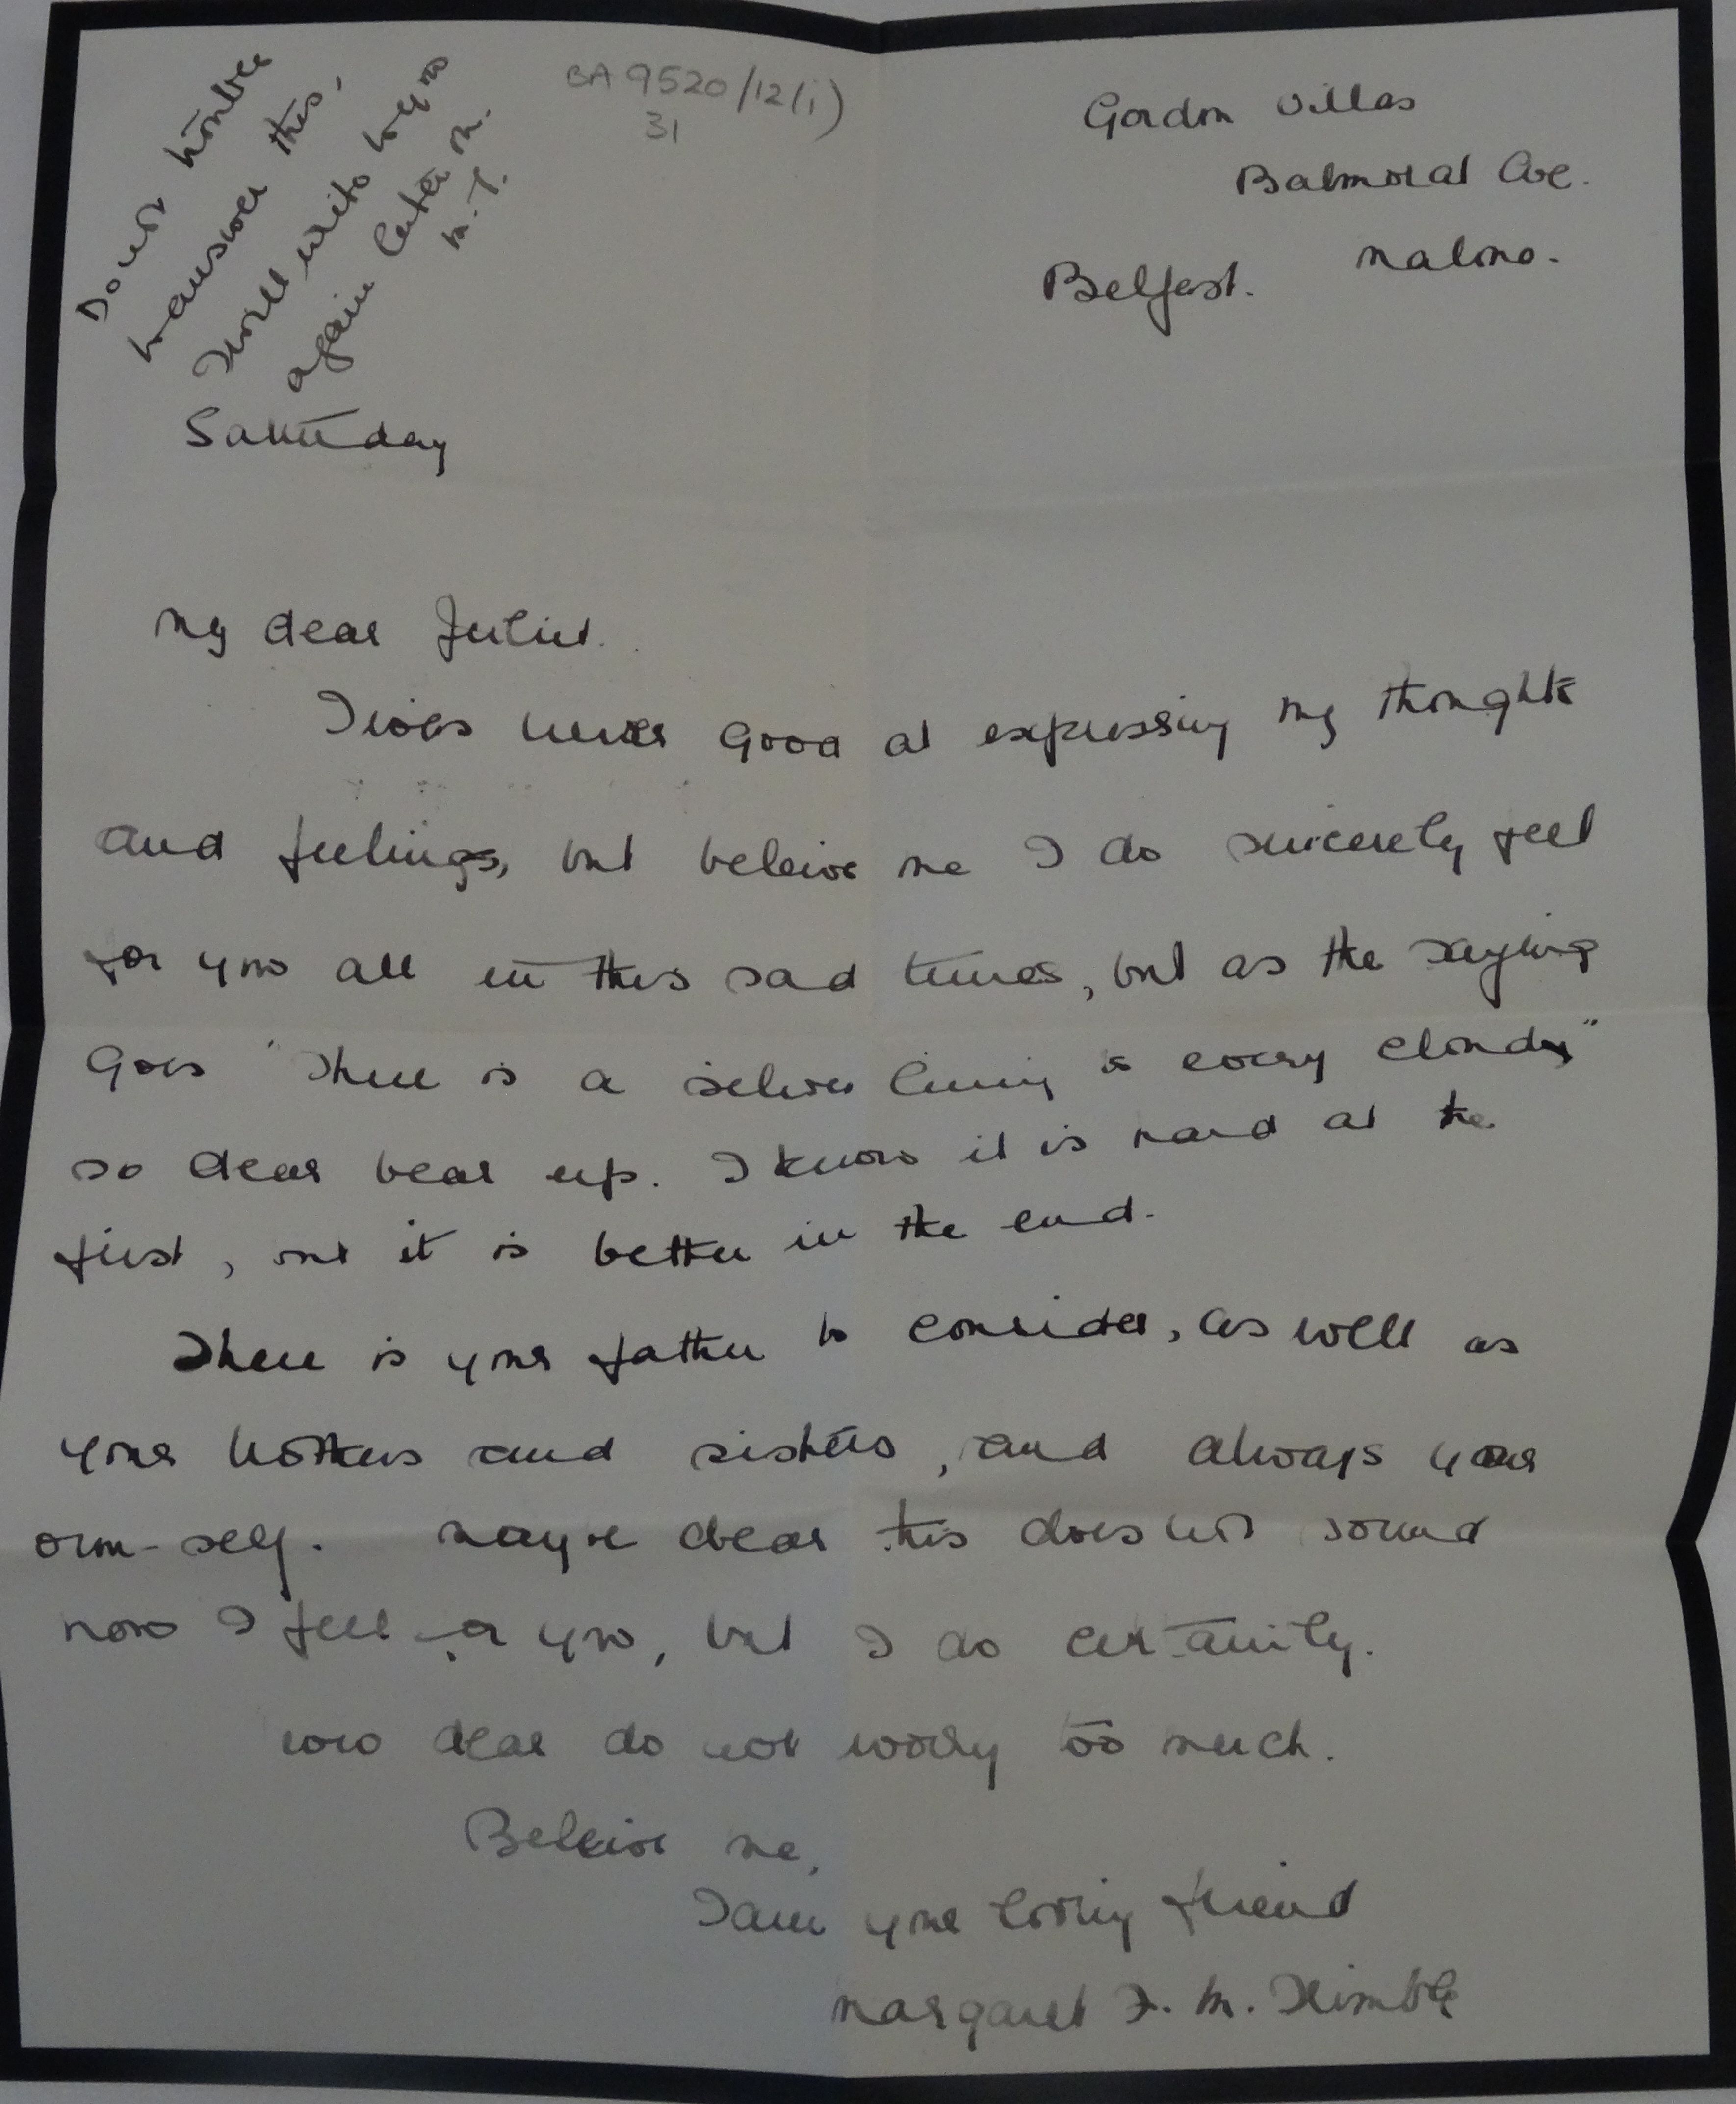 Don't trouble
to answer this,
I will write to you
again later on.
M.T.
BA 9520/12(i)
31
Gordon Villas
Balmoral Ave.
Malone.
Belfast.
Saturday
My dear Juliet.
I was never good at expressing my thoughts
and feelings, but beleive me I do sincerely feel
for you all in this sad times, but as the saying
goes "There is a silver lining to every cloudy"
so dear bear up. I know it is hard at the
first, but it is better in the end.
There is your father to consider, as well as
your brothers and sisters, and always your
own-self. Maybe dear this does not sound
how I feel for you, but I do certainily.
Now dear do not worry too much.
Beleive me,
I am your loving friend
Margaret F. M. Trimble